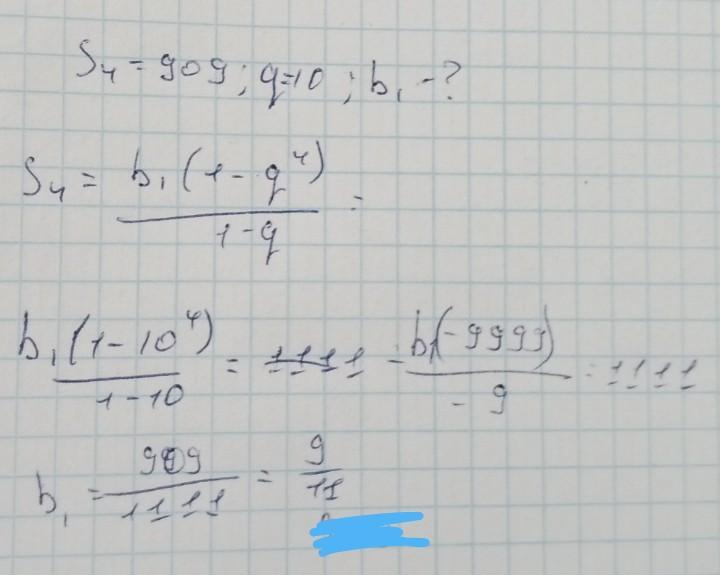 S₄ = 909; q=10; b₁ - ?
S₄ = b₁(1 - q⁴) / 1 - q =
b₁(1 - 10⁴) / 1 - 10 = 1111 = b₁(-9999) / -9 = 1111
b₁ = 909 / 1111 = 9 / 11